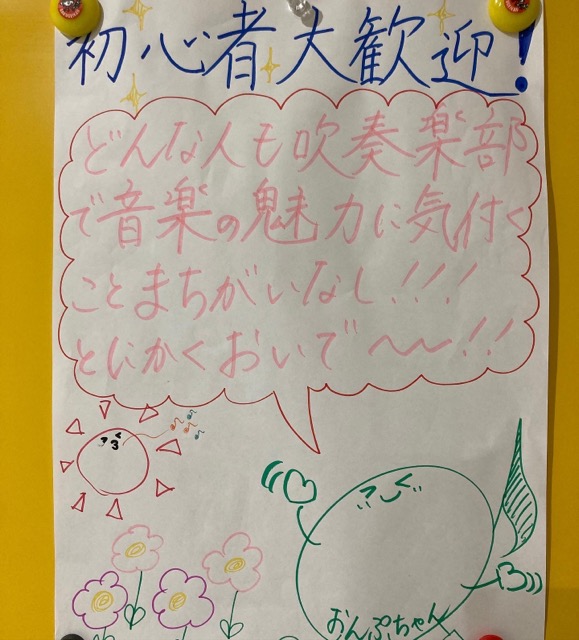 初心者大歓迎!
どんな人も吹奏楽部
で音楽の魅力に気付く
ことまちがいなし!!!
とにかくおいで〜〜!!
おんぷちゃん